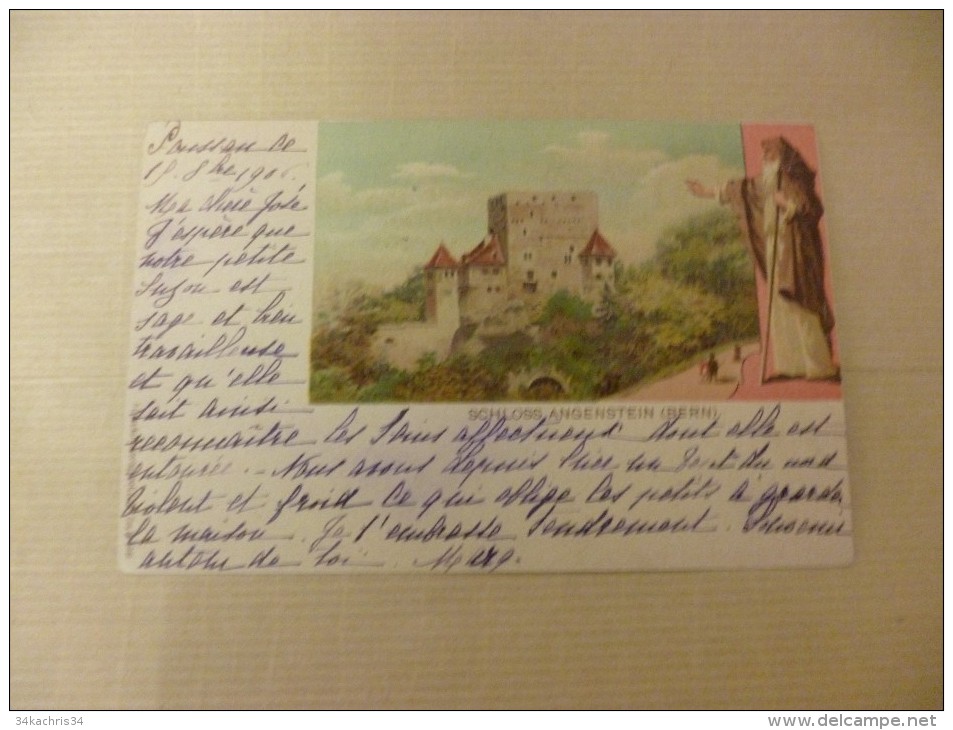 Poussan le
18 8bre 190
Ma chère José
J'espère que
notre petite
Suzon est
sage et bien
travailleuse
et qu'elle
sait ainsi
SCHLOSS ANGENSTEIN (BERN)
reconnaître les soins affectueux dont elle est
entourée. - Nous avons depuis hier un vent du nord
violent et froid ce qui oblige les petits à garder
la maison. Je t'embrasse tendrement. Souvenir
autour de toi. Marg.
34kachris34
http://www.delcampe.net